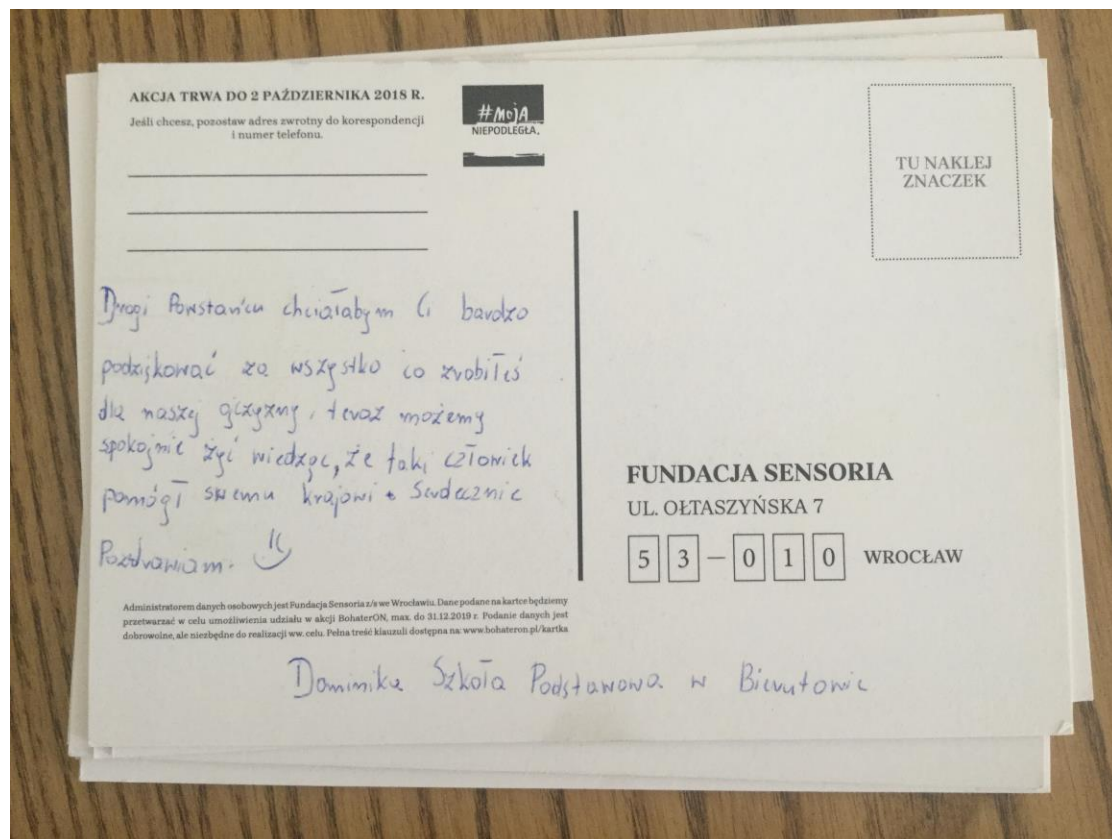 AKCJA TRWA DO 2 PAŹDZIERNIKA 2018 R.
Jeśli chcesz, pozostaw adres zwrotny do korespondencji
i numer telefonu.
#MOJA
NIEPODLEGŁA.
TU NAKLEJ
ZNACZEK
Drogi Powstańcu chciałabym Ci bardzo
podziękować za wszystko co zrobiłeś
dla naszej ojczyzny, teraz możemy
spokojnie żyć wiedząc, że taki człowiek
pomógł swemu krajowi. Serdecznie
Pozdrawiam.
FUNDACJA SENSORIA
UL. OŁTASZYŃSKA 7
53-010 WROCŁAW
Administratorem danych osobowych jest Fundacja Sensoria z/s we Wrocławiu. Dane podane na kartce będziemy
przetwarzać w celu umożliwienia udziału w akcji BohaterON, max. do 31.12.2019 r. Podanie danych jest
dobrowolne, ale niezbędne do realizacji ww. celu. Pełna treść klauzuli dostępna na: www.bohateron.pl/kartka
Dominika Szkoła Podstawowa w Bierutowie